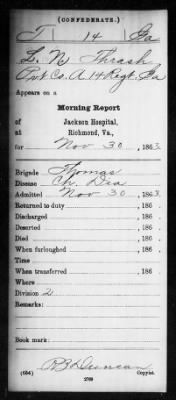 (CONFEDERATE.)
T 14 Ga
L. N. Thrash
Pvt Co. A 14 Regt. Ga
Appears on a
Morning Report
of Jackson Hospital,
at Richmond, Va.,
for Nov 30, 1863
Brigade Thomas
Disease Ch. Dia
Admitted Nov 30, 1863.
Returned to duty , 186 .
Discharged , 186 .
Deserted , 186 .
Died , 186 .
When furloughed , 186 .
Time
When transferred , 186 .
Where
Division 2
Remarks:
Book mark:
R B Duncan
(634) Copyist.